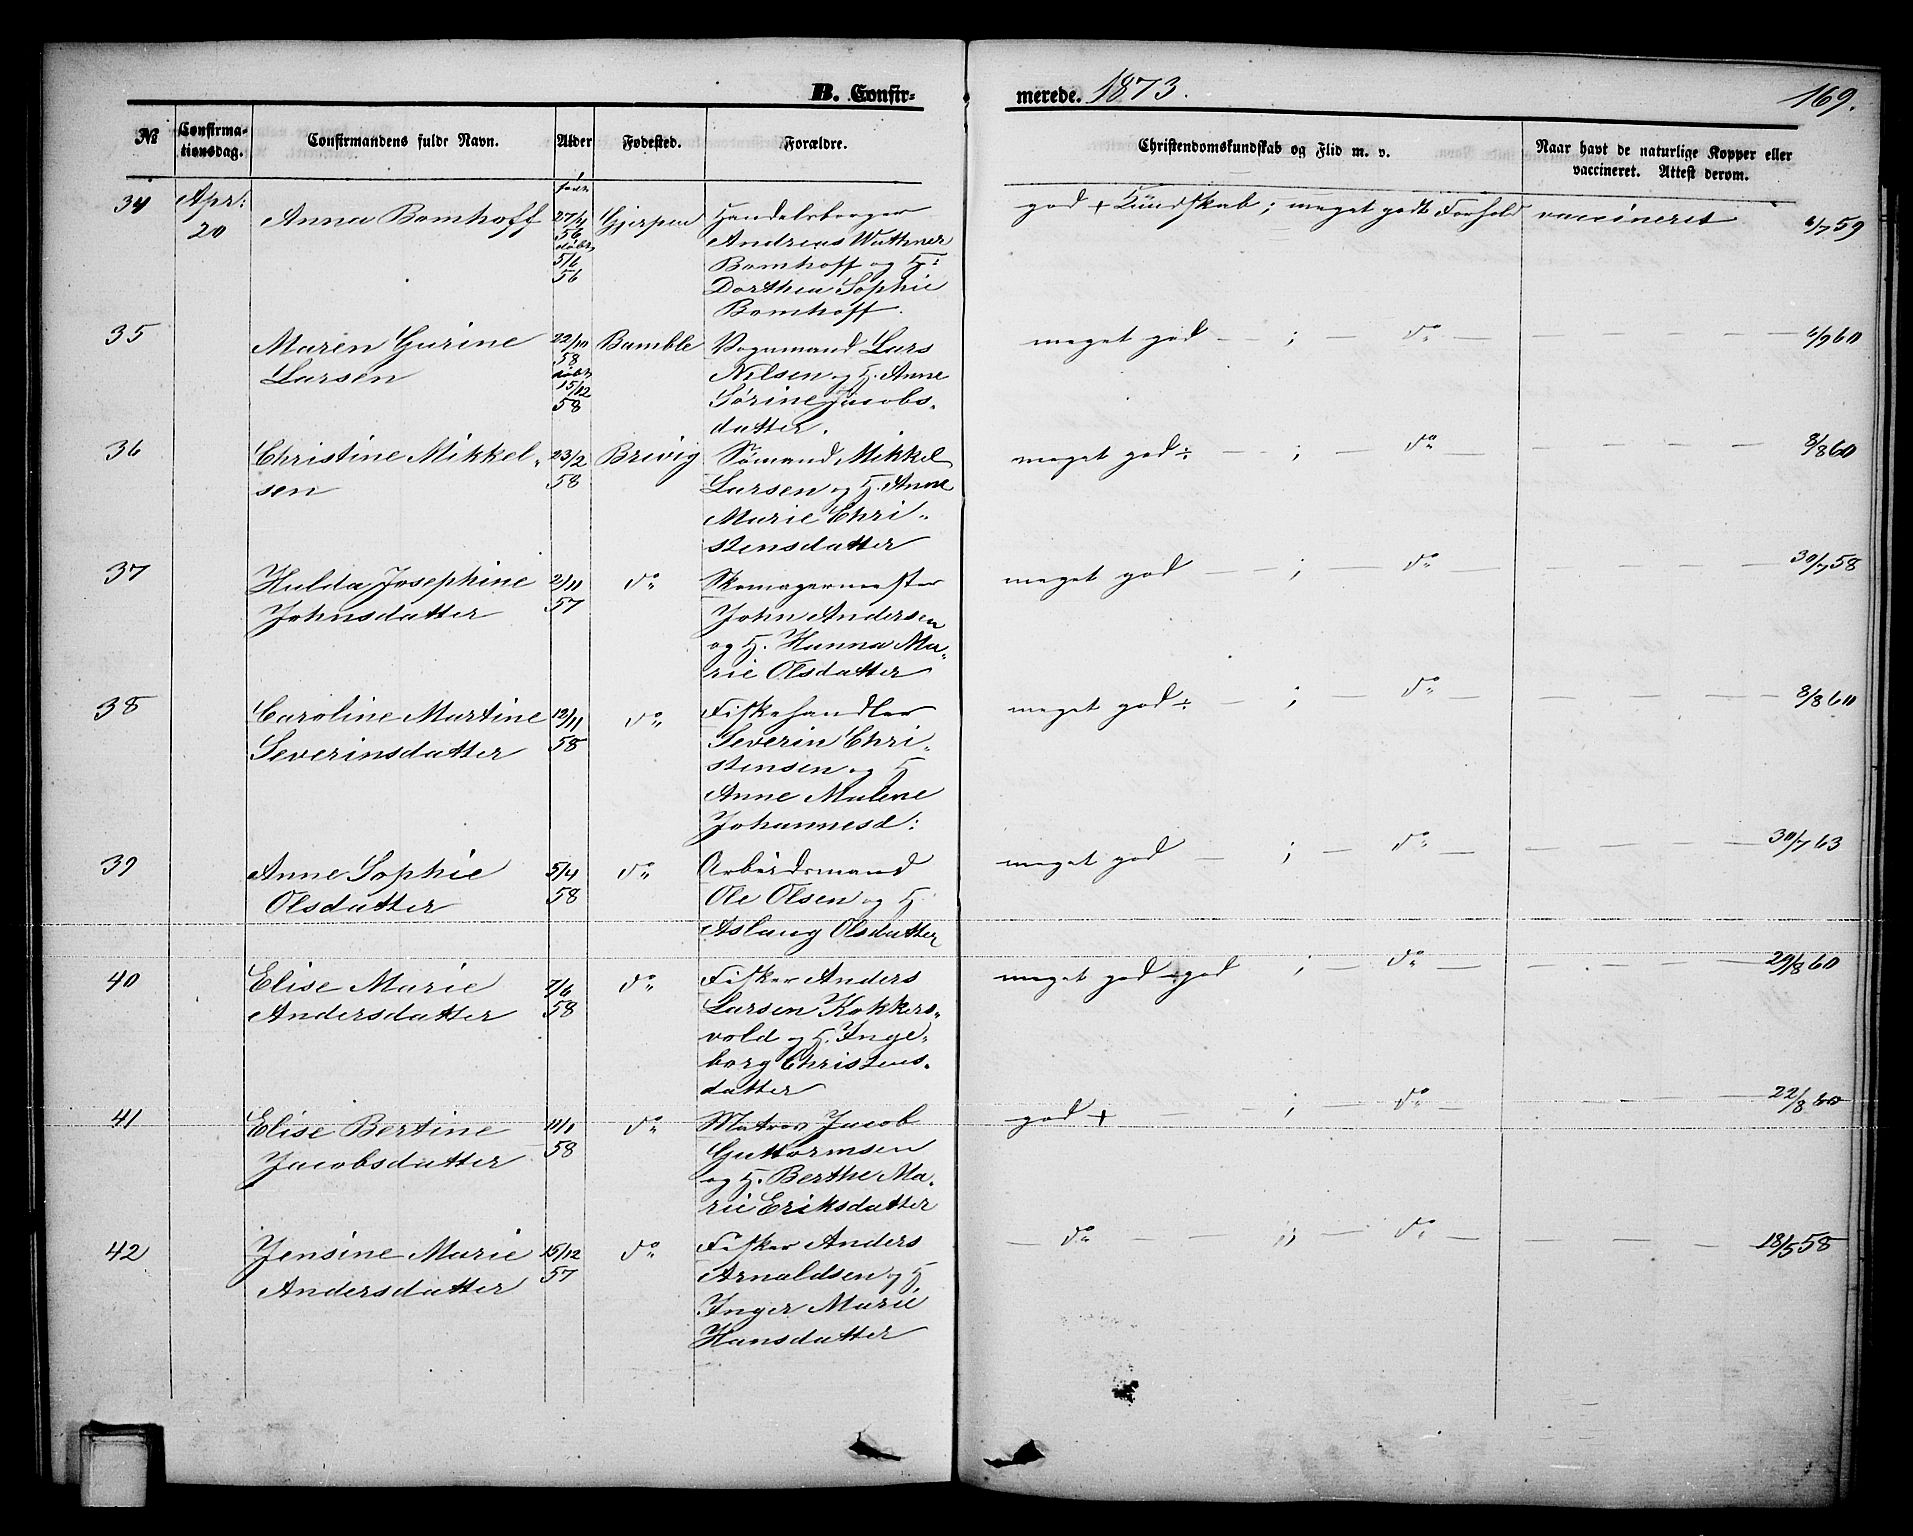 B. Confir-
merede. 1873.
169.
No
Confirma-
tionsdag.
Confirmandens fulde Navn.
Alder
Fødested.
Forældre.
Christendomskundskab og Flid m. v.
Naar havt de naturlige Kopper eller
vaccineret. Attest derom.
34 Apr: Anna Bomhoff født 27/4 Gjerpen Handelsborger god + Kundskab ; meget godt Forhold vaccineret 6/7 59
20 56 Andreas Wuthner
døbt Bomhoff og H:
5/6 Dorthea Sophie
56 Bomhoff.
35 Maren Gurine 22/10 Bamble Vognmand Lars meget god — ; — do — — — — — 6/9 60
Larsen 58 Nilsen og H. Anne
døbt Sørine Jacobs-
15/12 datter.
58
36 Christine Mikkel- 23/2 Brevig Sømand Mikkel meget god ÷ — ; — do — — — — 8/8 60
sen 58 Larsen og H. Anne
Marie Chri-
stensdatter
37 Hulda Josephine 2/11 do Skomagermester meget god — — ; — do — — — — 30/7 58
Johnsdatter 57 John Andersen
og H. Hanna Ma-
rie Olsdatter
38 Caroline Martine 13/11 do Fiskehandler meget god ÷ — ; — do — — — — 8/8 60
Severinsdatter 58 Severin Chri-
stensen og H
Anne Malene
Johannesd:
39 Anne Sophie 5/4 do Arbeidsmand meget god — ; — do — — — — 30/7 63
Olsdatter 58 Ole Olsen og H
Aslaug Olsdatter
40 Elise Marie 7/6 do Fisker Anders meget god ÷ god ; — do — — — — 29/8 60
Andersdatter 58 Larsen Kokkers-
vold og H. Inge-
borg Christens-
datter
41 Elise Bertine 11/1 do Matros Jacob god + — ; — do — — — — 22/8 60
Jacobsdatter 58 Guttormsen
og H. Berthe Ma-
rie Eriksdatter
42 Jensine Marie 15/12 do Fisker Anders — do — — ; — do — — — — 18/5 58
Andersdatter 57 Arnoldsen og H.
Inger Marie
Hansdatter